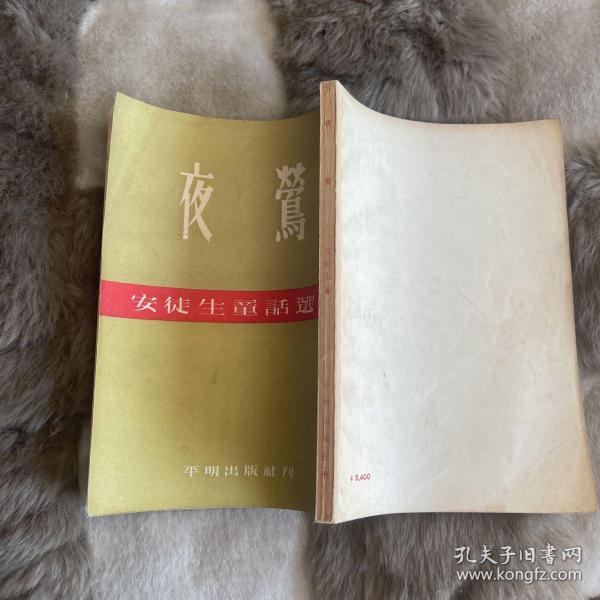 夜鶯
安徒生童話選
平明出版社刊
夜鶯
¥ 5,400
孔夫子旧书网
www.kongfz.com